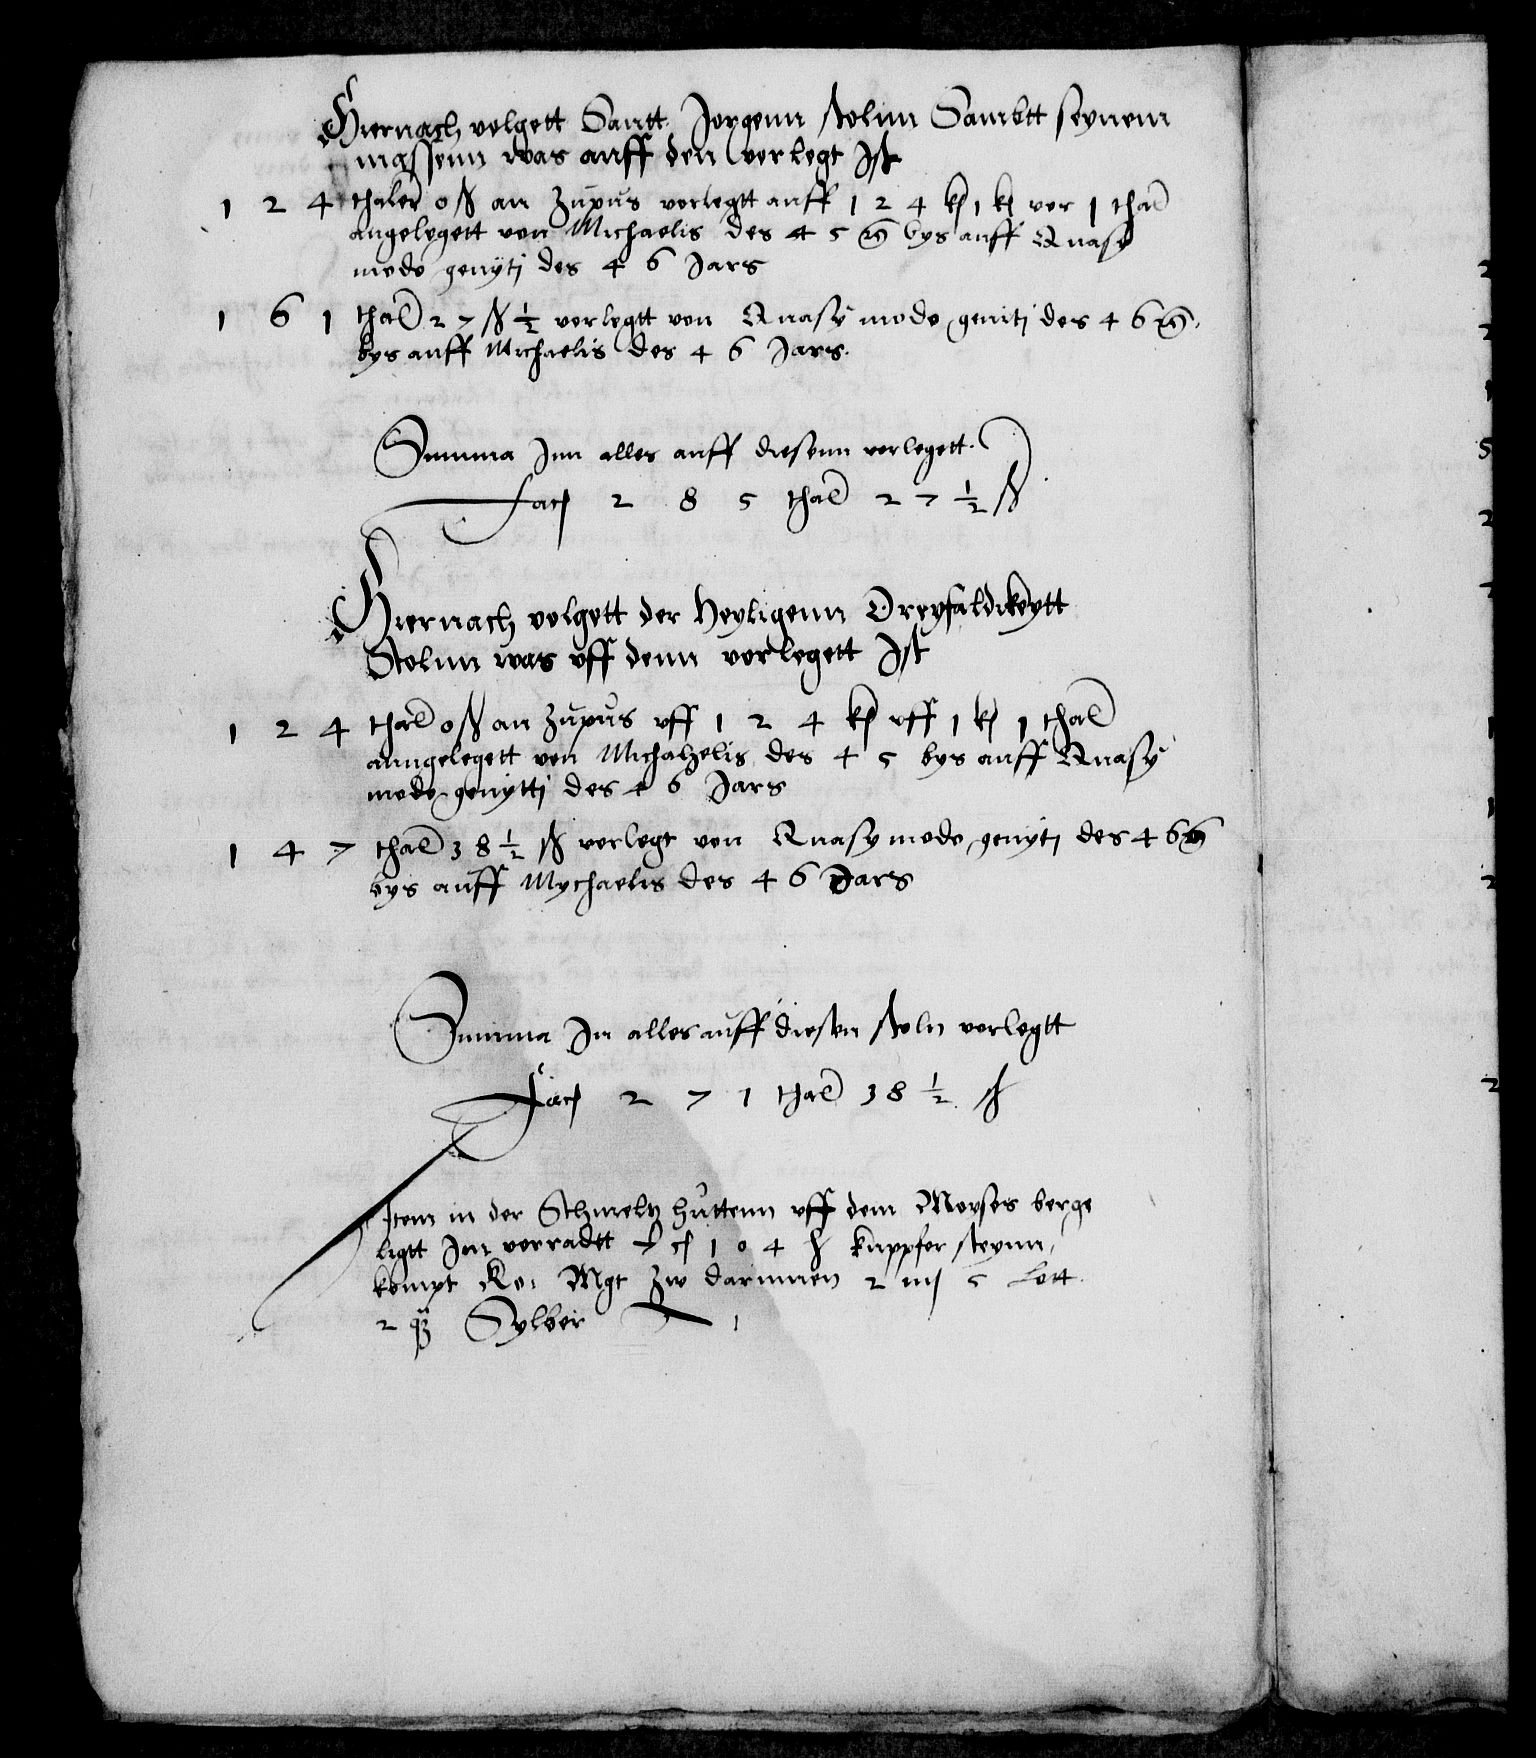 Hiernach volgett Santt Jorgenn stolnn Sambtt seynenn
massenn was auff den vorlegt Jst
1 2 4 thaler 0 ß an Zupus vorlegtt auff 1 2 4 kß 1 kß vor 1 thal
angelegett von Michaelis des 4 5 bys auff Quasy
modo genyti des 4 6 Jars
1 6 1 thal 2 7 ß ½ vorlegtt von Quasy modo geniti des 4 6
bys auff Michaelis des 4 6 Jars.
Summa Jnn alles auff diesenn vorlegett.
fac 2 8 5 thal 2 7 ½ ß
Hiernach volgett der Heyligenn Dreyfaldikeytt
Stolnn was vff denn vorlegett Jst
1 2 4 thal 0 ß an Zupus vff 1 2 4 kß vff 1 kß 1 thal
anngelegett von Michahelis des 4 5 bys auff Quasy
modo genytti des 4 6 Jars
1 4 7 thal 3 8 ½ ß vorlegt von Quasy modo genyti des 4 6
bys auff Mychaelis des 4 6 Jars
Summa Jn alles auff diesen stoln vorlegtt
Fac 2 7 1 thal 3 8 ½ ß
Item in der Schmeltz huttenn vff dem Moyses berge
ligtt Jm vorradtt 1 0 4 kuppfer steynn,
kompt Ko. Mgt zw darinnen 2 m 5 Lott
2 q Sylber